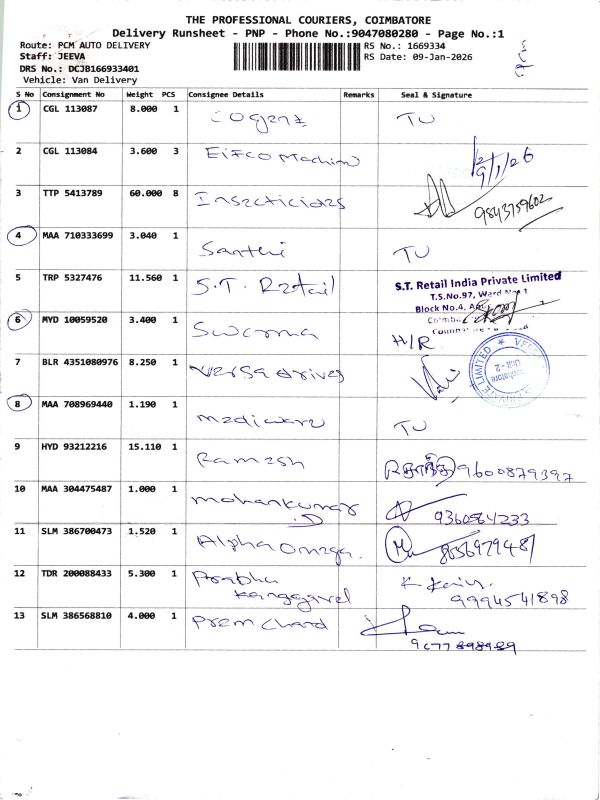 THE PROFESSIONAL COURIERS, COIMBATORE
Delivery Runsheet - PNP - Phone No.:9047080280 - Page No.:1
Route: PCM AUTO DELIVERY RS No.: 1669334
Staff: JEEVA RS Date: 09-Jan-2026
DRS No.: DCJB166933401
Vehicle: Van Delivery
S No Consignment No Weight PCS Consignee Details Remarks Seal & Signature
1 CGL 113087 8.000 1 Cogent TU
2 CGL 113084 3.600 3 Eifco Machine 9/1/26
3 TTP 5413789 60.000 8 Insecticides 9843759602
4 MAA 710333699 3.040 1 Santhi TU
5 TRP 5327476 11.560 1 S.T. Retail
S.T. Retail India Private Limited
T.S.No.97, Ward No 1
Block No.4,
6 MYD 10059520 3.400 1 Swarna H/R
7 BLR 4351080976 8.250 1 Versa drives
PRIVATE LIMITED ★ Unit-2
8 MAA 708969440 1.190 1 mediware TU
9 HYD 93212216 15.110 1 Ramesh 9600879397
10 MAA 304475487 1.000 1 mohankumar 9360584233
11 SLM 386700473 1.520 1 Alpha Omega. 8056929487
12 TDR 200088433 5.300 1 Prabha 9994541898
13 SLM 386568810 4.000 1 Prem Chand